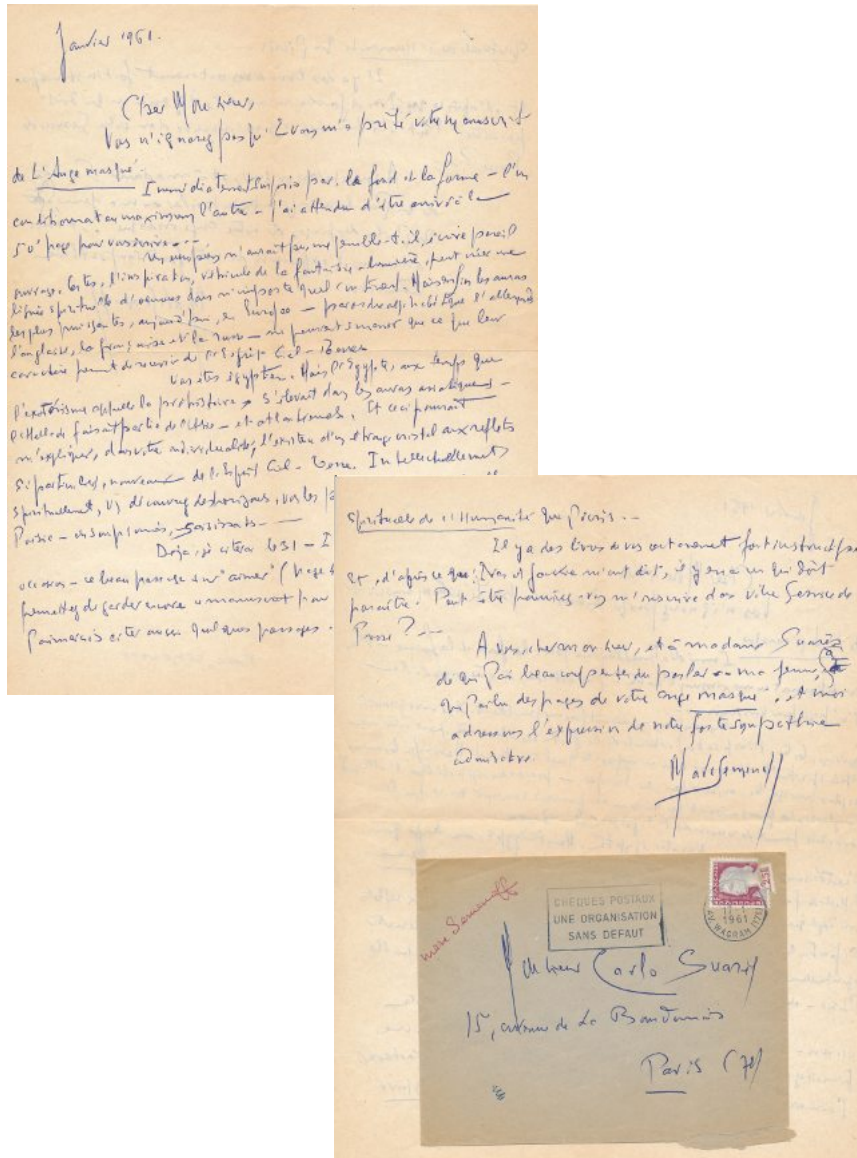 Janvier 1961.
Cher Monsieur,
Vous n'ignorez pas qu'I vous m'a prêté votre manuscrit
de L'Ange masqué.
Immédiatement surpris par le fond et la forme – l'un
conditionnant au maximum l'autre – j'ai attendu d'être arrivé à la
50e page pour vous écrire...
n'aurait pu, me semble-t-il, écrire pareil
ouvrage. Certes, l'inspiration, véhicule de la fantaisie, peut créer une
lignée spirituelle d'oeuvres dans n'importe quel continent. Mais les auras
les plus puissantes, aujourd'hui, en Europe – par ordre alphabétique l'allemande
l'anglaise, la française et la russe – ne peuvent que ce que leur
caractère permet de recevoir de l'Esprit Ciel-Terre.
Vous êtes égyptien. Mais l'Egypte, aux temps que
l'exotérisme appelle la préhistoire, s'élevait dans les auras asiatiques –
faisait partie de – et atlantéennes. Et ceci pourrait
m'expliquer, dans votre individualité, l'existence d'un étrange cristal aux reflets
si particuliers, nouveaux de l'Esprit Ciel-Terre. Intellectuellement
spirituellement, vs découvrez des horizons, vos
Poésie – insoupçonnés, saisissants –
Déjà, je citerai 
occasion – ce beau passage sur "aimer" (page
permettez de garder encore le manuscrit pour
J'aimerais citer aussi quelques passages.
spirituelle de l'Humanité que j'écris. –
Il y a des livres de vous certainement fort instructifs
Et, d'après ce que m'ont dit, il y en a un qui doit
paraître. Peut-être pourriez-vous m'inscrire dans votre Service de
Presse ? –
A vous, cher monsieur, et à madame Suarès
de qui j'ai beaucoup entendu parler ma femme,
qui a lu des pages de votre ange masqué, et moi
adressons l'expression de notre forte sympathie
admirative.
Marc Semenoff
Marc Semenoff
CHEQUES POSTAUX
UNE ORGANISATION
SANS DEFAUT
1961
AV. WAGRAM (17e)
Monsieur Carlo Suarès
15, avenue de La Bourdonnais
Paris (7e)